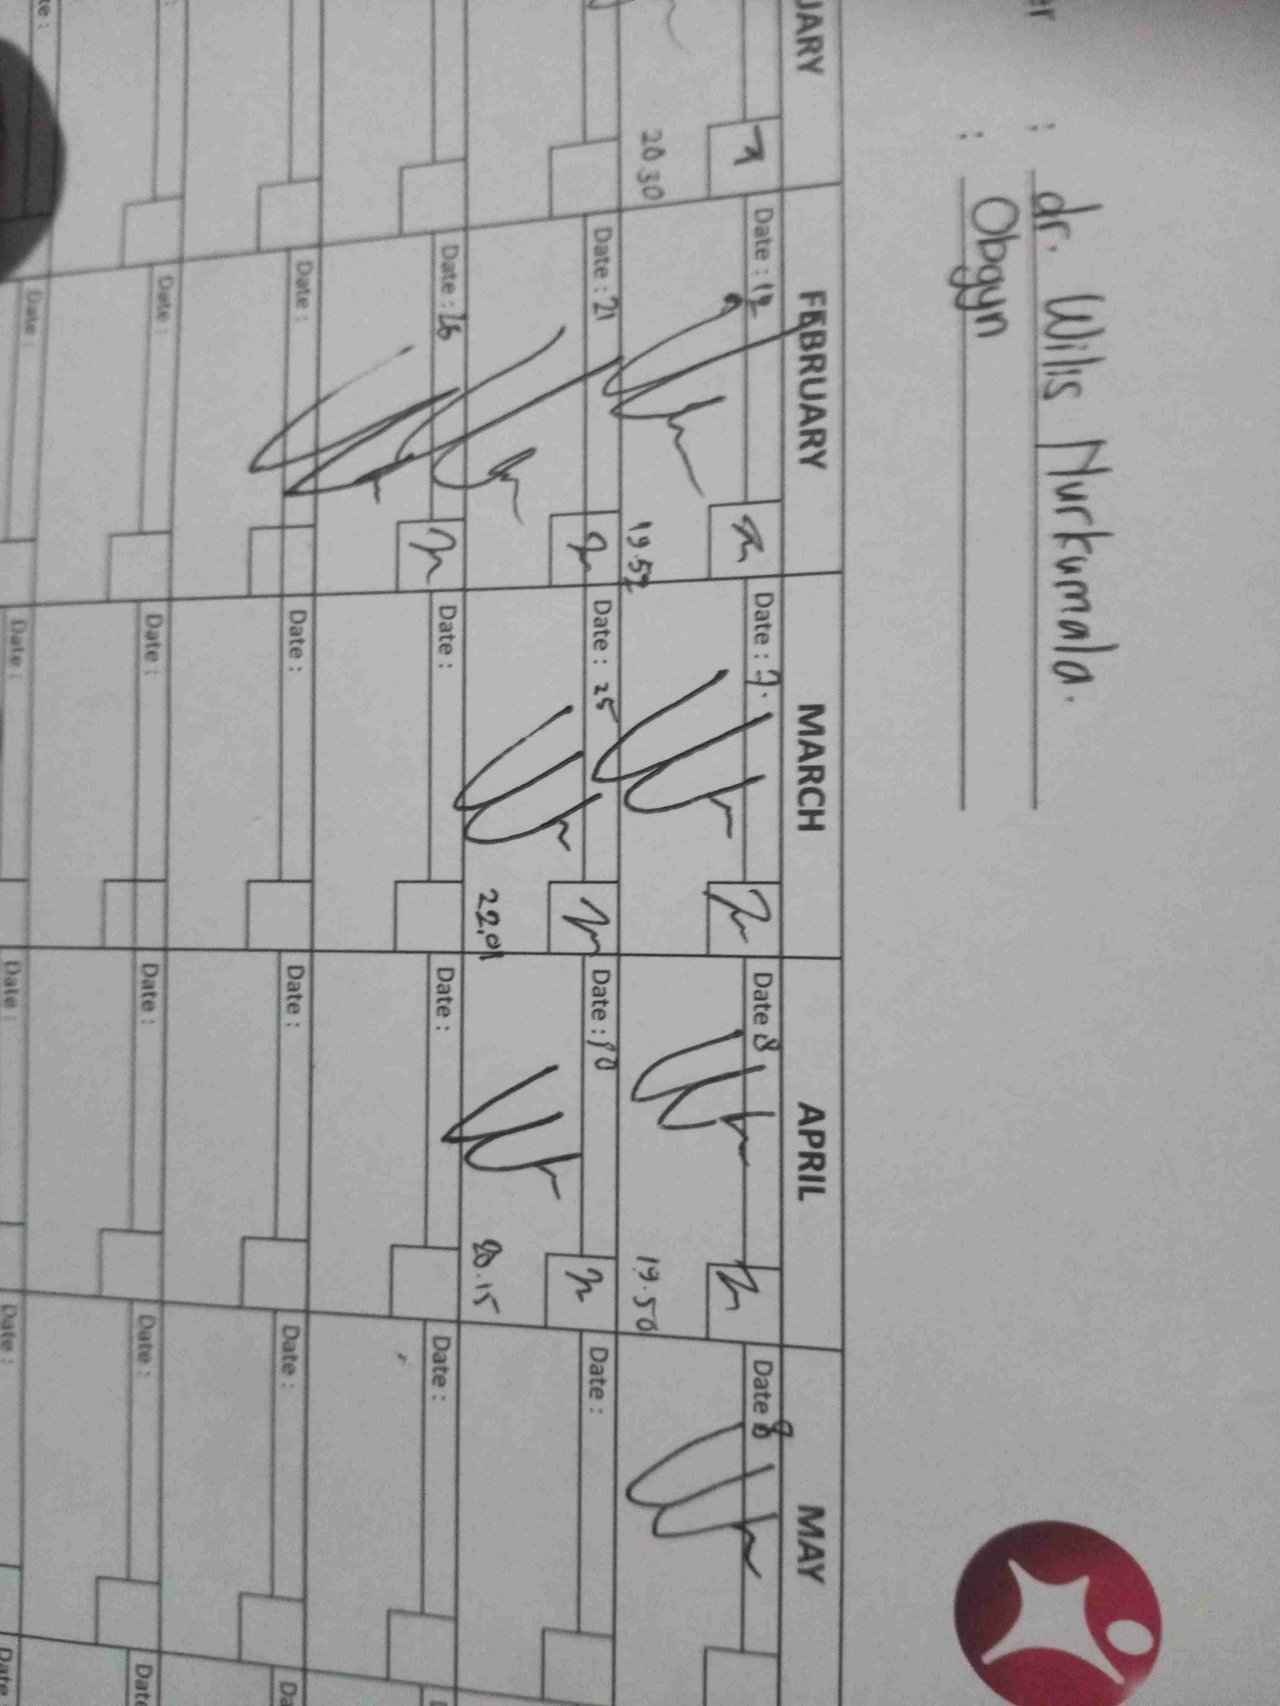 er : dr. Wilis Nurkumala.
: Obgyn
UARY FEBRUARY MARCH APRIL MAY
Date : 12 Date : 7. Date 8 Date 8
20 30 19.52 19.50
Date : 21 Date : 25 Date : 10 Date :
22.01 20.15
Date : 26 Date : Date : Date :
Date : Date : Date : Date : Da
Date : Date : Date : Date : Date
te : Date : Date : Date : Date : Date